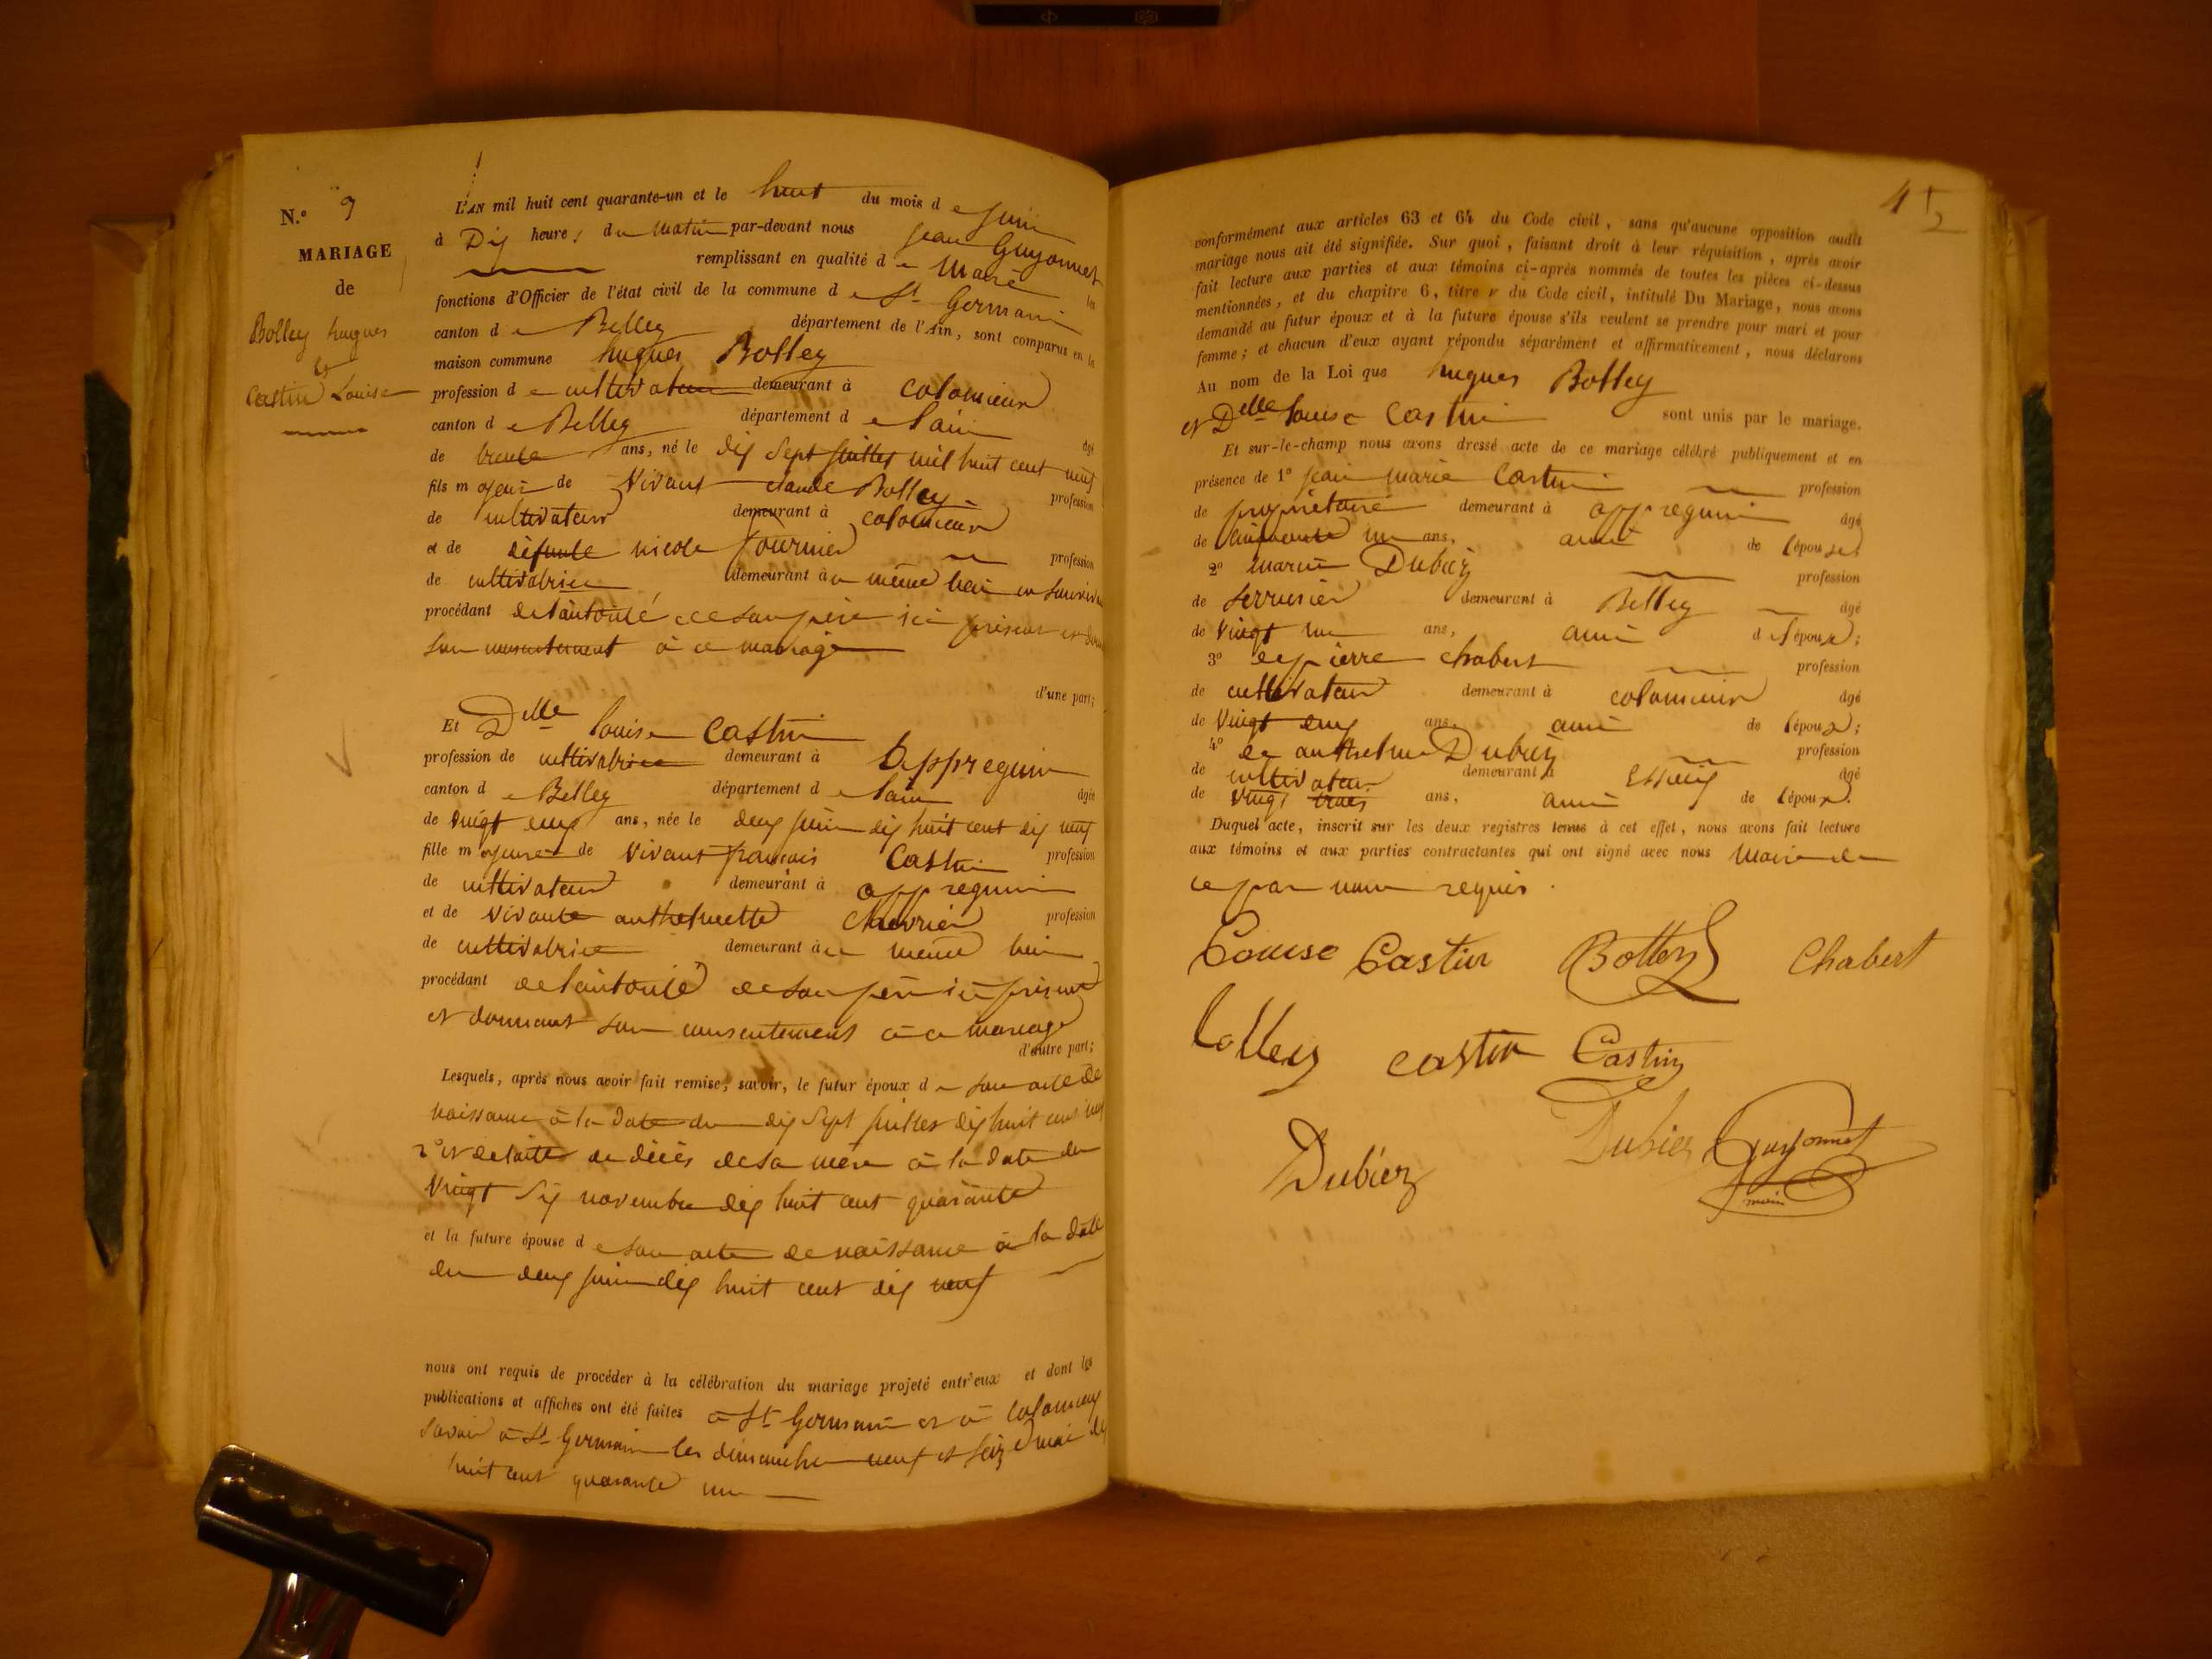 N.° 9
MARIAGE
de
Bolley hugues
et
Castin Louise
L'AN mil huit cent quarante-un et le huit du mois de juin
à Dix heures du matin par-devant nous jean Guyonnet
remplissant en qualité de Maire les
fonctions d'Officier de l'état civil de la commune de St Germain
canton de Belley département de l'Ain, sont comparus en la
maison commune hugues Bolley
profession de cultivateur demeurant à colomieu
canton de Belley département de l'ain âgé
de trente ans, né le dix sept juillet mil huit cent neuf
fils majeur de vivant claude Bolley profession
de cultivateur demeurant à colomieu
et de défunte nicole fournier profession
de cultivatrice demeurant à même lieu
procédant de l'autorité de son père ici présent et
son consentement à ce mariage
d'une part;
Et Delle louise Castin
profession de cultivatrice demeurant à appregnin
canton de Belley département de l'ain âgée
de vingt deux ans, née le deux juin dix huit cent dix neuf
fille majeure de vivant françois Castin profession
de cultivateur demeurant à appregnin
et de vivante anthelmette Chevrier profession
de cultivatrice demeurant à même lieu
procédant de l'autorité de son père ici présent
et donnant son consentement à ce mariage
d'autre part;
Lesquels, après nous avoir fait remise, savoir, le futur époux de son acte de
naissance à la date du dix sept juillet dix huit cent neuf
2° et de l'acte de décès de sa mère à la date du
vingt six novembre dix huit cent quarante
et la future épouse de son acte de naissance à la date
du deux juin dix huit cent dix neuf
nous ont requis de procéder à la célébration du mariage projeté entr'eux et dont les
publications et affiches ont été faites à St Germain et à colomieu
savoir à St Germain les dimanches neuf et seize mai dix
huit cent quarante un
conformément aux articles 63 et 64 du Code civil, sans qu'aucune opposition audit
mariage nous ait été signifiée. Sur quoi, faisant droit à leur réquisition, après avoir
fait lecture aux parties et aux témoins ci-après nommés de toutes les pièces ci-dessus
mentionnées, et du chapitre 6, titre v du Code civil, intitulé Du Mariage, nous avons
demandé au futur époux et à la future épouse s'ils veulent se prendre pour mari et pour
femme; et chacun d'eux ayant répondu séparément et affirmativement, nous déclarons
Au nom de la Loi que hugues Bolley
et Delle louise Castin sont unis par le mariage.
Et sur-le-champ nous avons dressé acte de ce mariage célébré publiquement et en
présence de 1° jean marie Castin profession
de propriétaire demeurant à appregnin âgé
de cinquante un ans, ami de l'épouse
2° marin Dubiez profession
de serrurier demeurant à Belley âgé
de vingt un ans, ami de l'épouse;
3° de pierre chabert profession
de cultivateur demeurant à colomieu âgé
de vingt deux ans, ami de l'épouse;
4° de anthelme Dubiez profession
de cultivateur demeurant à âgé
de vingt trois ans, ami de l'épouse.
Duquel acte, inscrit sur les deux registres tenus à cet effet, nous avons fait lecture
aux témoins et aux parties contractantes qui ont signé avec nous Maire de
ce par nous requis.
Louise Castin Bolley Chabert
bolley castin Castin
Dubiez Dubiez Guyonnet
maire